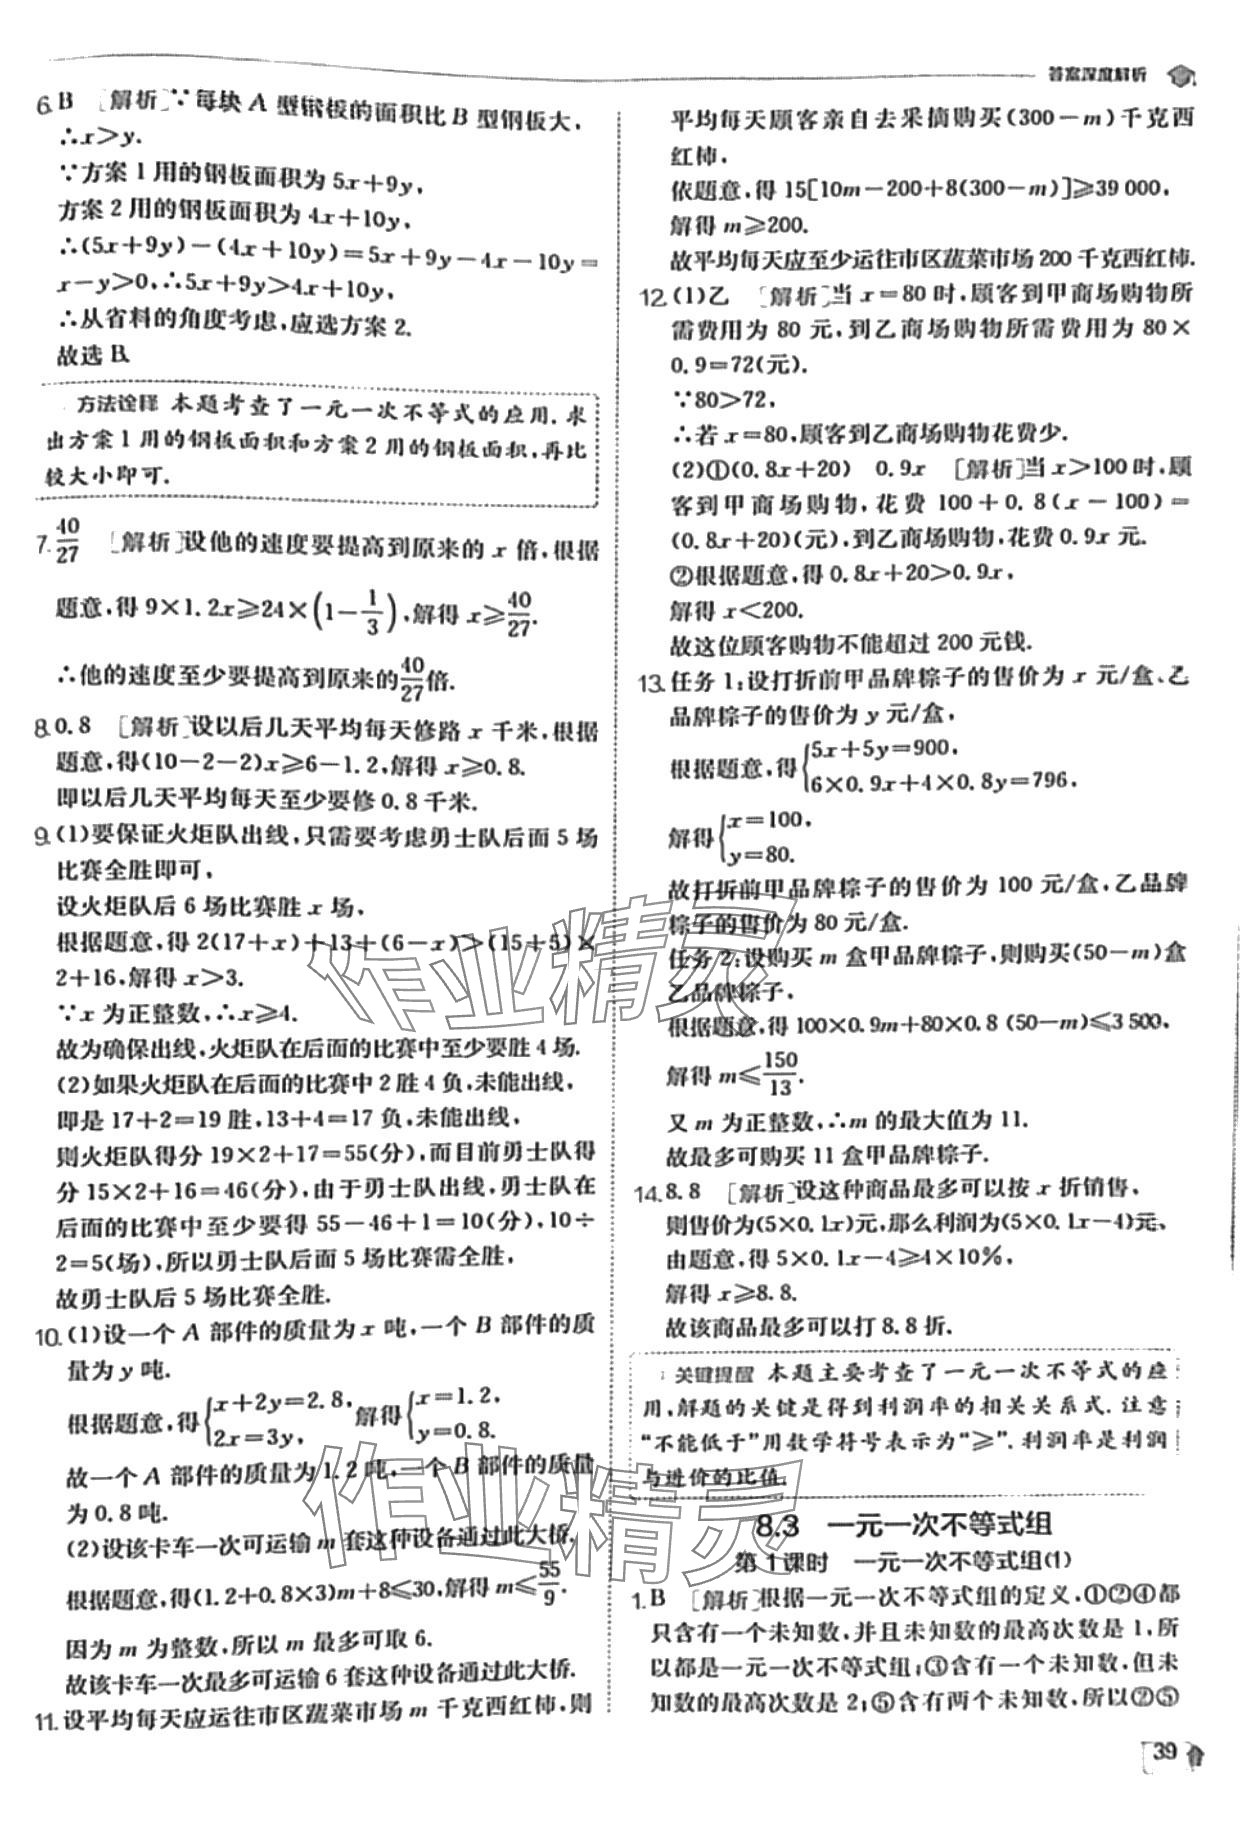 答案深度解析
6. B ［解析］∵每块 A 型钢板的面积比 B 型钢板大，
∴x＞y.
∵方案 1 用的钢板面积为 5x＋9y，
方案 2 用的钢板面积为 4x＋10y，
∴(5x＋9y)－(4x＋10y)＝5x＋9y－4x－10y＝
x－y＞0，∴5x＋9y＞4x＋10y，
∴从省料的角度考虑，应选方案 2.
故选 B.
方法诠释 本题考查了一元一次不等式的应用.求
出方案 1 用的钢板面积和方案 2 用的钢板面积，再比
较大小即可.
7. 40/27 ［解析］设他的速度要提高到原来的 x 倍，根据
题意，得 9×1.2x≥24×(1－1/3)，解得 x≥40/27.
∴他的速度至少要提高到原来的40/27倍.
8. 0.8 ［解析］设以后几天平均每天修路 x 千米，根据
题意，得(10－2－2)x≥6－1.2，解得 x≥0.8.
即以后几天平均每天至少要修 0.8 千米.
9. (1)要保证火炬队出线，只需要考虑勇士队后面 5 场
比赛全胜即可，
设火炬队后 6 场比赛胜 x 场，
根据题意，得 2(17＋x)＋13＋(6－x)＞(15＋5)×
2＋16，解得 x＞3.
∵x 为正整数，∴x≥4.
故为确保出线，火炬队在后面的比赛中至少要胜 4 场.
(2)如果火炬队在后面的比赛中 2 胜 4 负，未能出线，
即是 17＋2＝19 胜，13＋4＝17 负，未能出线，
则火炬队得分 19×2＋17＝55(分)，而目前勇士队得
分 15×2＋16＝46(分)，由于勇士队出线，勇士队在
后面的比赛中至少要得 55－46＋1＝10(分)，10÷
2＝5(场)，所以勇士队后面 5 场比赛需全胜，
故勇士队后 5 场比赛全胜.
10. (1)设一个 A 部件的质量为 x 吨，一个 B 部件的质
量为 y 吨.
根据题意，得{x＋2y＝2.8，2x＝3y，解得{x＝1.2，y＝0.8.
故一个 A 部件的质量为 1.2 吨，一个 B 部件的质量
为 0.8 吨.
(2)设该卡车一次可运输 m 套这种设备通过此大桥.
根据题意，得(1.2＋0.8×3)m＋8≤30，解得 m≤55/9.
因为 m 为整数，所以 m 最多可取 6.
故该卡车一次最多可运输 6 套这种设备通过此大桥.
11. 设平均每天应运往市区蔬菜市场 m 千克西红柿，则
平均每天顾客亲自去采摘购买(300－m)千克西
红柿.
依题意，得 15[10m－200＋8(300－m)]≥39 000，
解得 m≥200.
故平均每天应至少运往市区蔬菜市场 200 千克西红柿.
12. (1)乙 ［解析］当 x＝80 时，顾客到甲商场购物所
需费用为 80 元，到乙商场购物所需费用为 80×
0.9＝72(元).
∵80＞72，
∴若 x＝80，顾客到乙商场购物花费少.
(2)①(0.8x＋20) 0.9x ［解析］当 x＞100 时，顾
客到甲商场购物，花费 100＋0.8(x－100)＝
(0.8x＋20)(元)，到乙商场购物，花费 0.9x 元.
②根据题意，得 0.8x＋20＞0.9x，
解得 x＜200.
故这位顾客购物不能超过 200 元钱.
13. 任务 1：设打折前甲品牌粽子的售价为 x 元/盒、乙
品牌粽子的售价为 y 元/盒，
根据题意，得{5x＋5y＝900，6×0.9x＋4×0.8y＝796，
解得{x＝100，y＝80.
故打折前甲品牌粽子的售价为 100 元/盒，乙品牌
粽子的售价为 80 元/盒.
任务 2：设购买 m 盒甲品牌粽子，则购买(50－m)盒
乙品牌粽子，
根据题意，得 100×0.9m＋80×0.8 (50－m)≤3 500，
解得 m≤150/13.
又 m 为正整数，∴m 的最大值为 11.
故最多可购买 11 盒甲品牌粽子.
14. 8.8 ［解析］设这种商品最多可以按 x 折销售，
则售价为(5×0.1x)元，那么利润为(5×0.1x－4)元，
由题意，得 5×0.1x－4≥4×10%，
解得 x≥8.8.
故该商品最多可以打 8.8 折.
关键提醒 本题主要考查了一元一次不等式的应
用，解题的关键是得到利润率的相关关系式.注意
“不能低于”用数学符号表示为“≥”.利润率是利润
与进价的比值.
8.3 一元一次不等式组
第 1 课时 一元一次不等式组(1)
1. B ［解析］根据一元一次不等式组的定义，①②④都
只含有一个未知数，并且未知数的最高次数是 1，所
以都是一元一次不等式组；③含有一个未知数，但未
知数的最高次数是 2；⑤含有两个未知数，所以②⑤
39
作业精灵
作业精灵